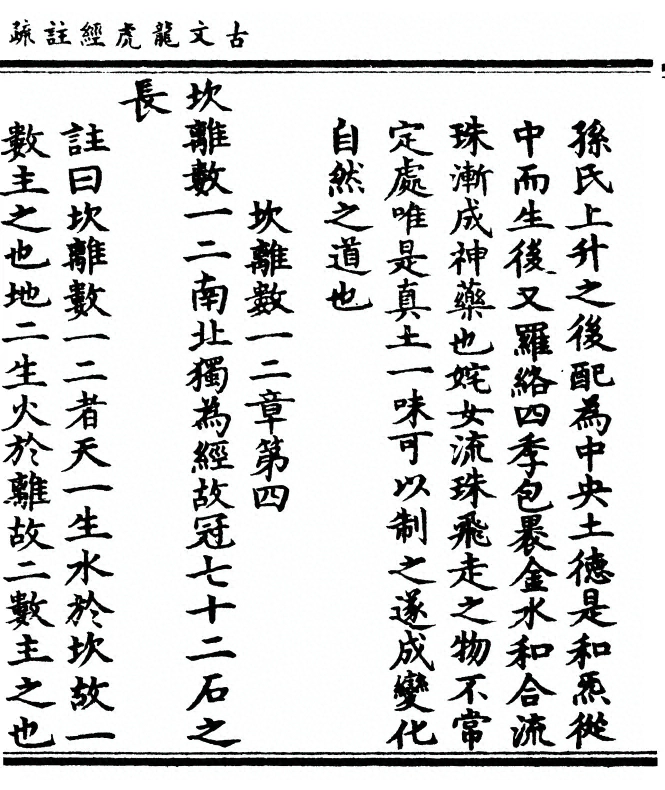 古文龍虎經註疏
孫氏上升之後配為中央土德是和炁從
中而生後又羅絡四季包褁金水和合流
珠漸成神藥也姹女流珠飛走之物不常
定處唯是真土一味可以制之遂成變化
自然之道也
坎離數一二章第四
坎離數一二南北獨為經故冠七十二石之
長
註曰坎離數一二者天一生水於坎故一
數主之也地二生火於離故二數主之也